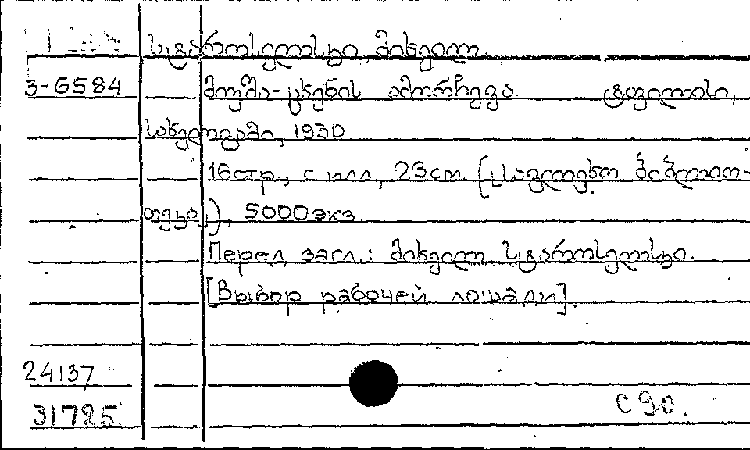 სტაროსელსკი, მიხეილ.
3-6584 მუშა-ცხენის ამორჩევა. ტფილისი,
სახელგამი, 1930
16стр., с илл., 23см. (სასოფლო ბიბლიო-
თეკა), 5000экз
Перед загл.: მიხეილ სტაროსელსკი.
[Выбор рабочей лошади].
24137
31725 С 90.